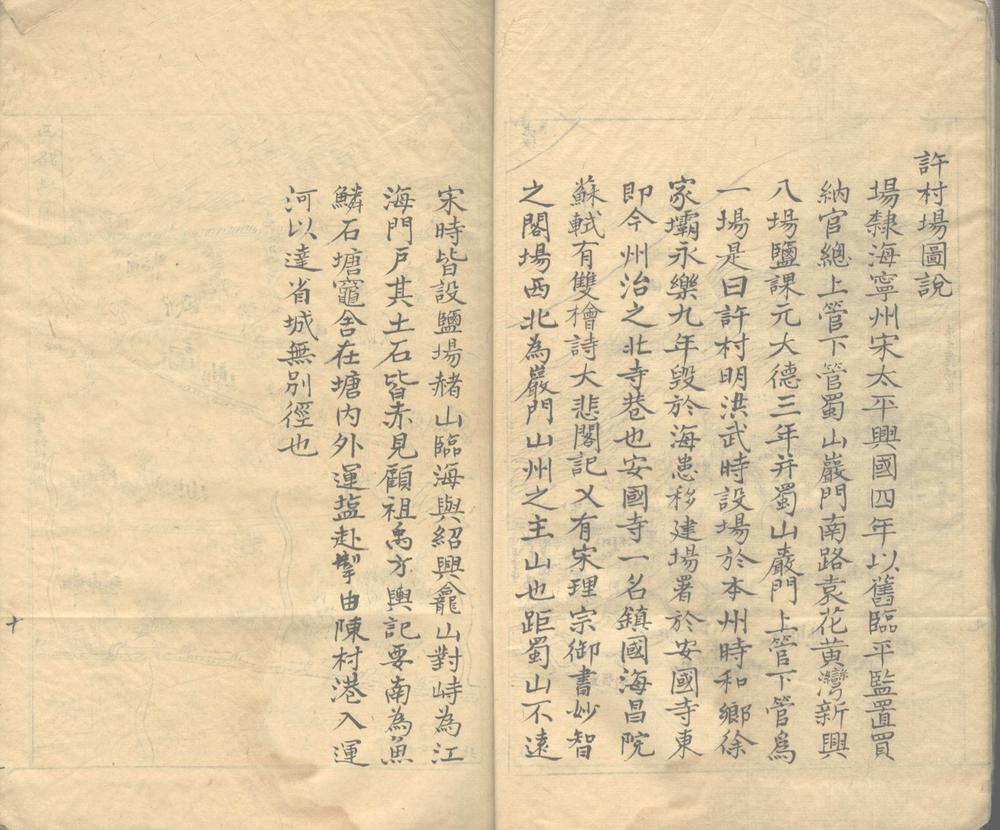 許村場圖說
場隸海寧州宋太平興國四年以舊臨平監置買
納官總上管下管蜀山巖門南路袁花黃灣新興
八場鹽課元大德三年并蜀山巖門上管下管爲
一場是曰許村明洪武時設場於本州時和鄉徐
家壩永樂九年毀於海患移建場署於安國寺東
即今州治之北寺巷也安國寺一名鎮國海昌院
蘇軾有雙檜詩大悲閣記又有宋理宗御書妙智
之閣場西北為巖門山州之主山也距蜀山不遠
宋時皆設鹽場赭山臨海與紹興龕山對峙為江
海門戶其土石皆赤見顧祖禹方輿記要南為魚
鱗石塘竈舍在塘內外運塩赴掣由陳村港入運
河以達省城無別徑也
十